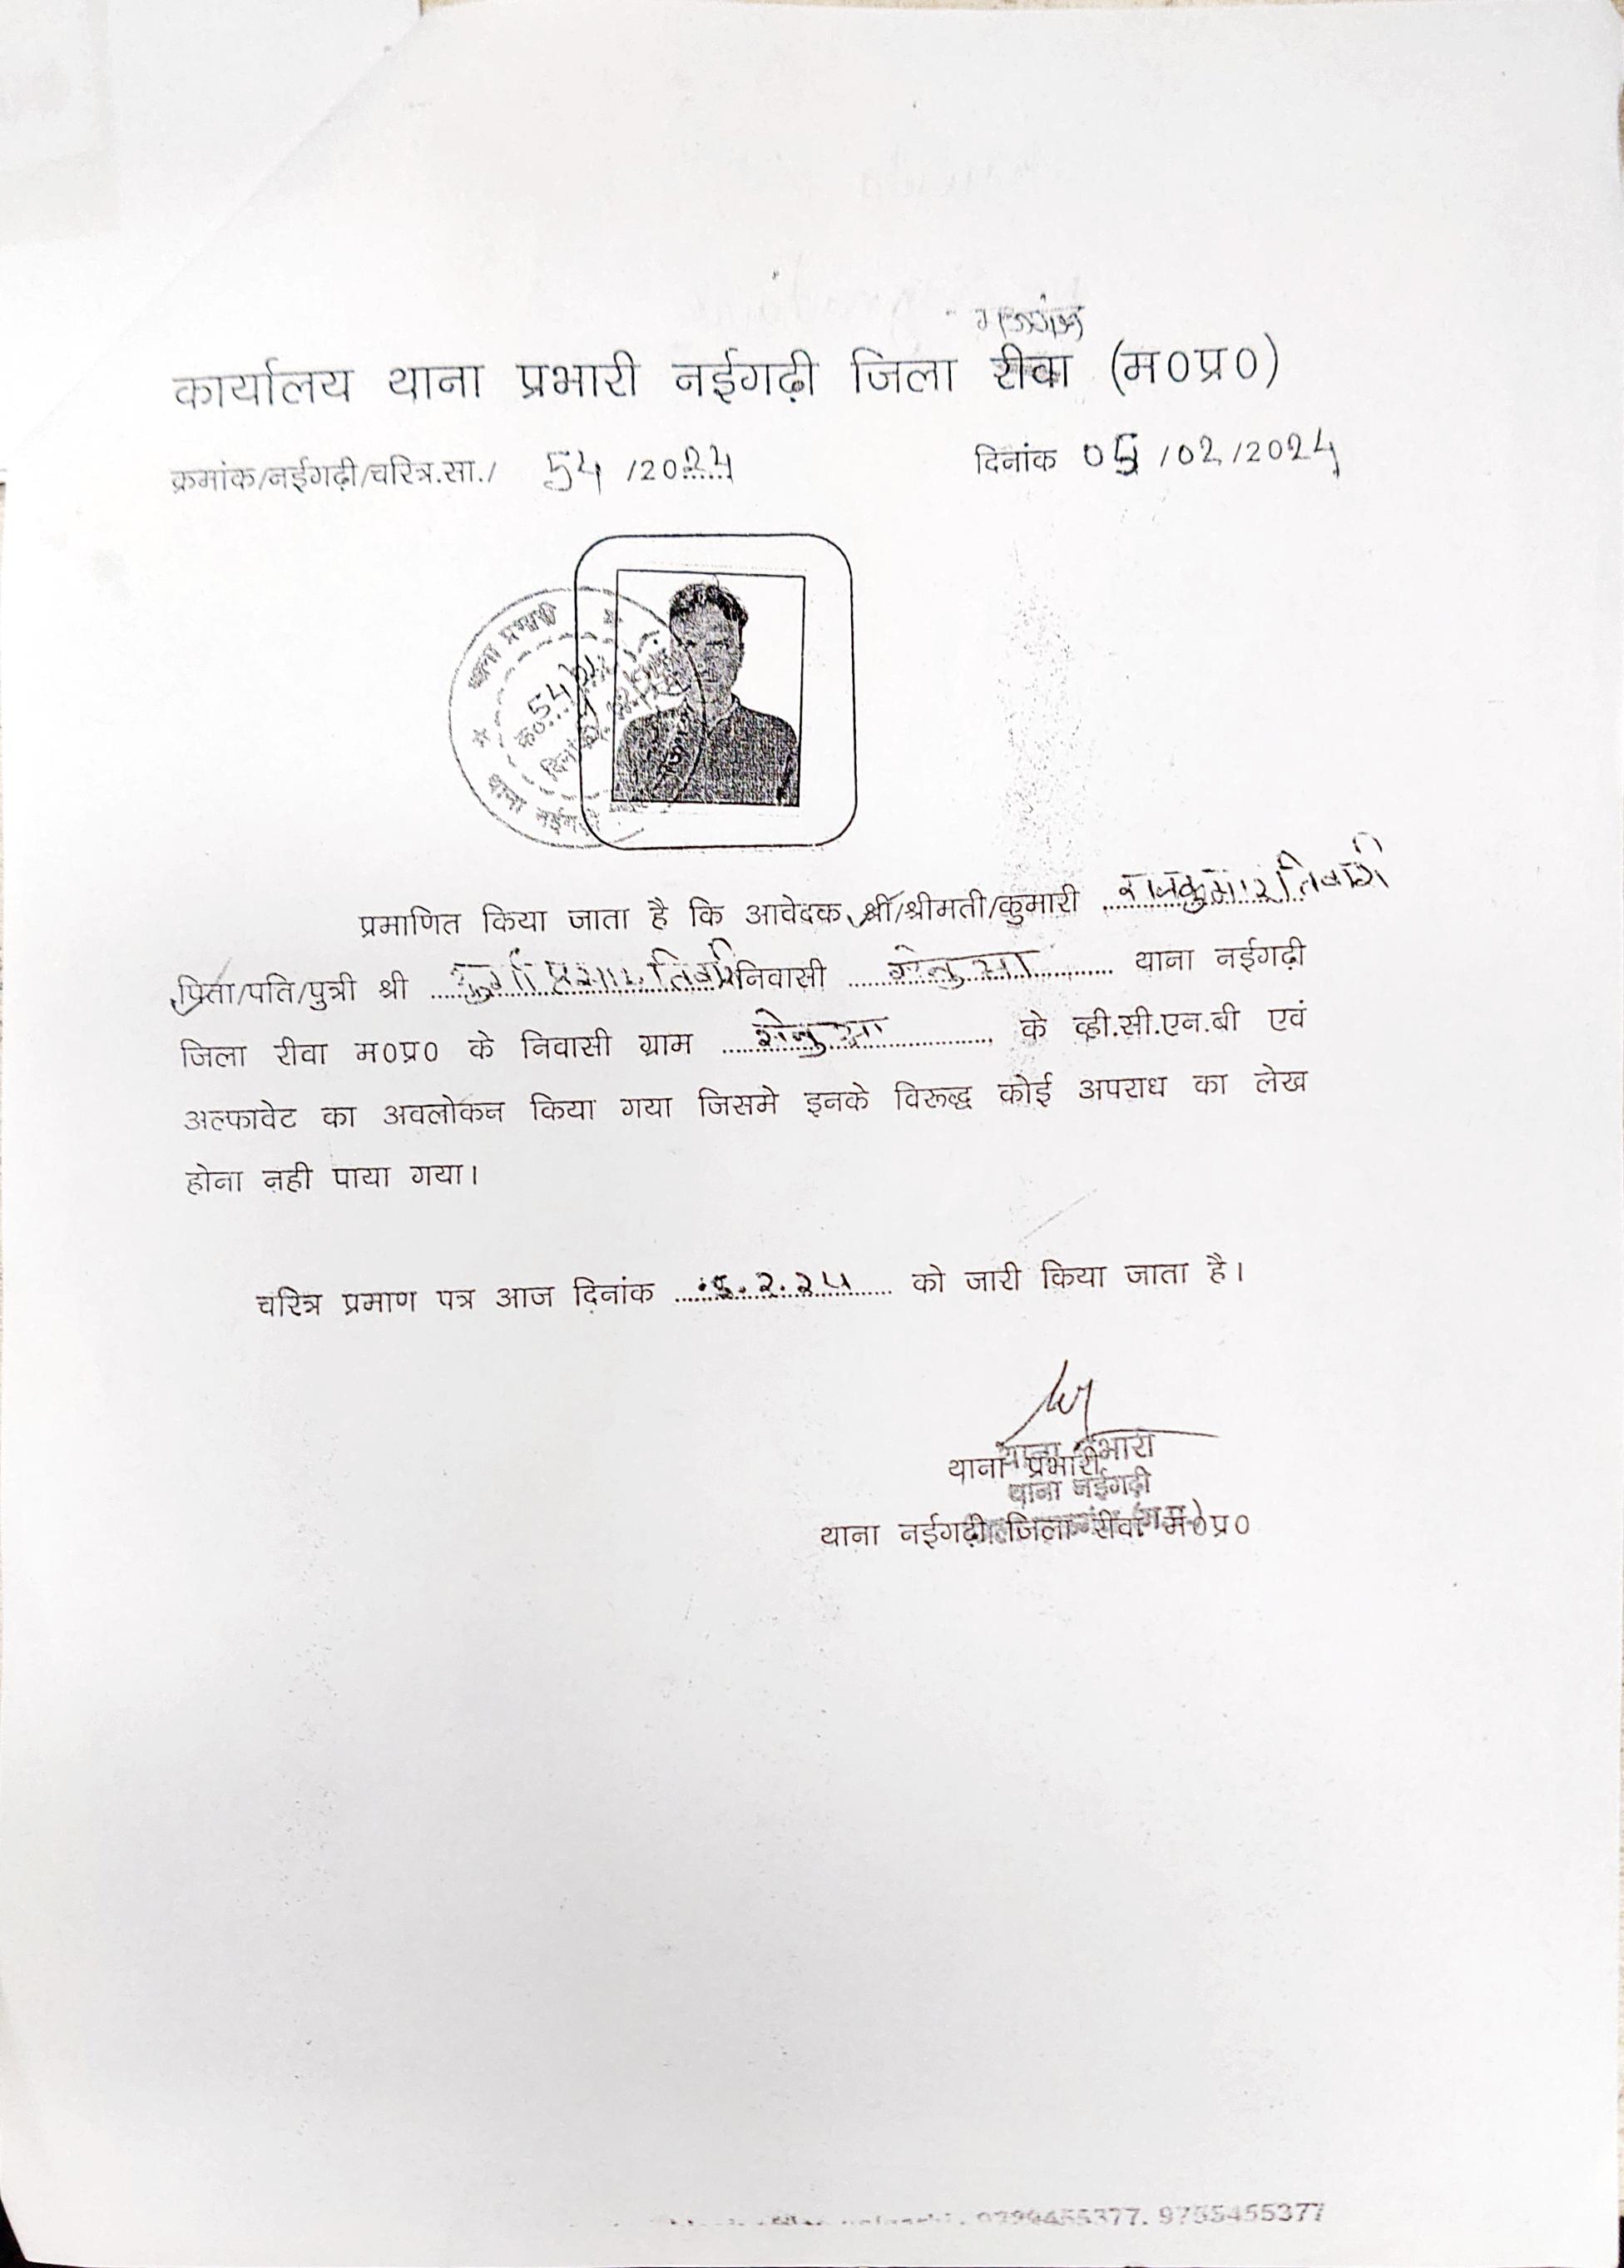 मऊगंज
कार्यालय थाना प्रभारी नईगढ़ी जिला रीवा (म०प्र०)
क्रमांक/नईगढ़ी/चरित्र.सा./ 54 /2024 दिनांक 05/02/2024
थाना प्रभारी
क्र० 54
थाना नईगढ़ी
प्रमाणित किया जाता है कि आवेदक श्री/श्रीमती/कुमारी राजकुमार तिवारी
पिता/पति/पुत्री श्री प्रसाद तिवारी निवासी थाना नईगढ़ी
जिला रीवा म०प्र० के निवासी ग्राम के व्ही.सी.एन.बी एवं
अल्फावेट का अवलोकन किया गया जिसमे इनके विरूद्ध कोई अपराध का लेख
होना नही पाया गया।
चरित्र प्रमाण पत्र आज दिनांक 5.2.24 को जारी किया जाता है।
थाना प्रभारी
थाना प्रभारी
थाना नईगढ़ी
थाना नईगढ़ी जिला रीवा म०प्र०
9755455377